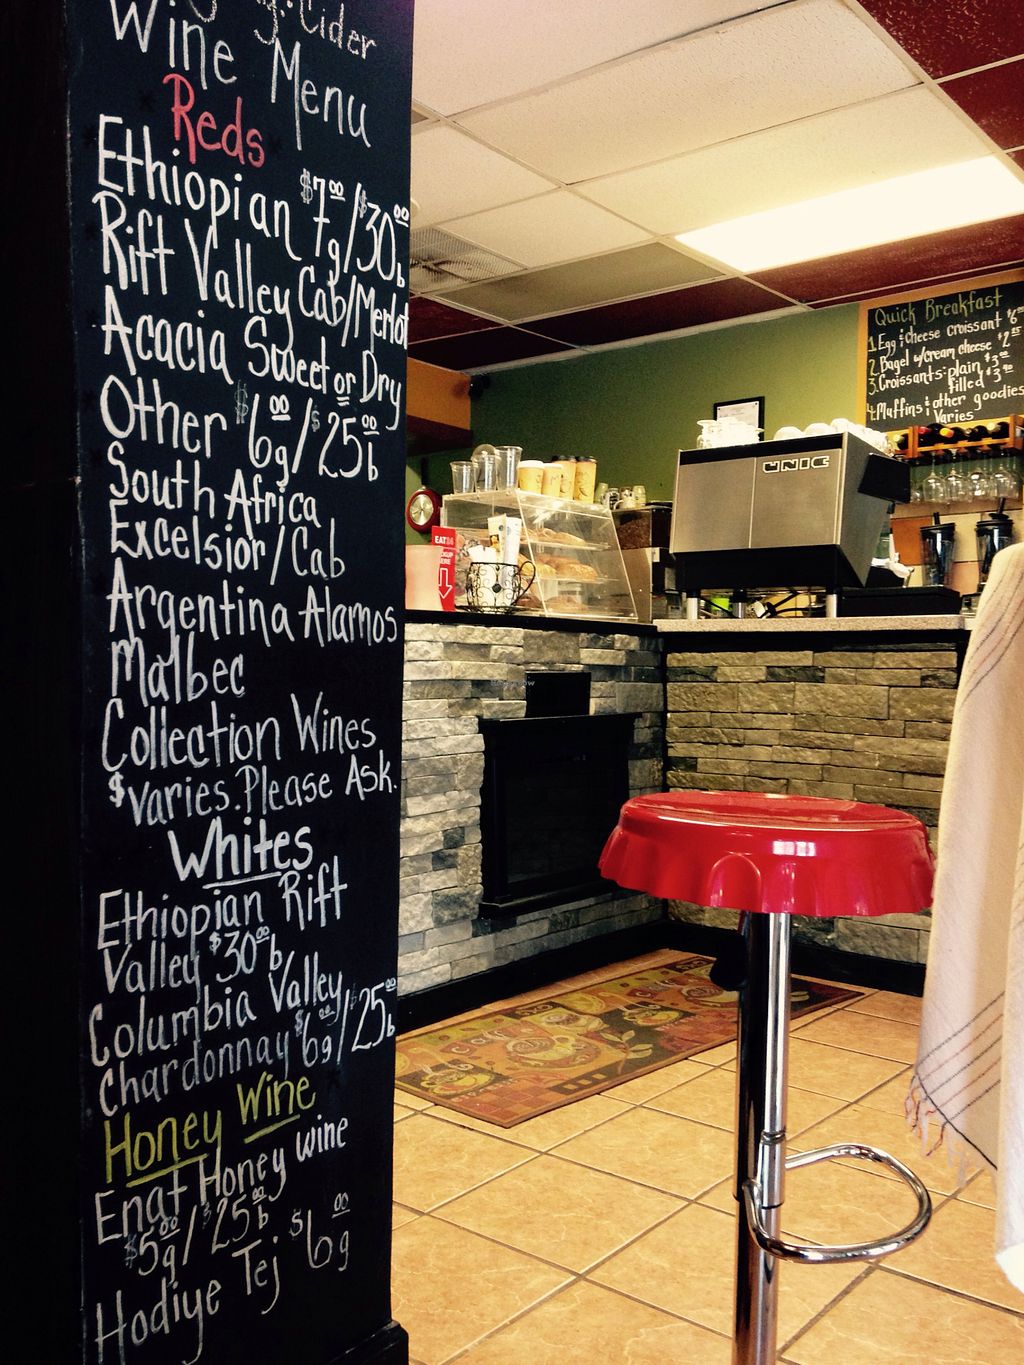 Cider
Wine Menu
Reds
Ethiopian $7.00g/$30.00b
Rift Valley Cab/Merlot
Acacia Sweet or Dry
Other $6.00g/$25.00b
South Africa
Excelsior/Cab
Argentina Alamos
Malbec
Collection Wines
$varies. Please Ask.
Whites
Ethiopian Rift
Valley $30.00b
Columbia Valley
Chardonnay $6.00g/$25.00b
Honey Wine
Enat Honey wine
$5.00g/$25.00b
Hodiye Tej $6.00g
Quick Breakfast
1. Egg & cheese croissant
2. Bagel w/cream cheese
3. Croissants: plain
filled
4. Muffins & other goodies
Varies
UNIC
EAT24